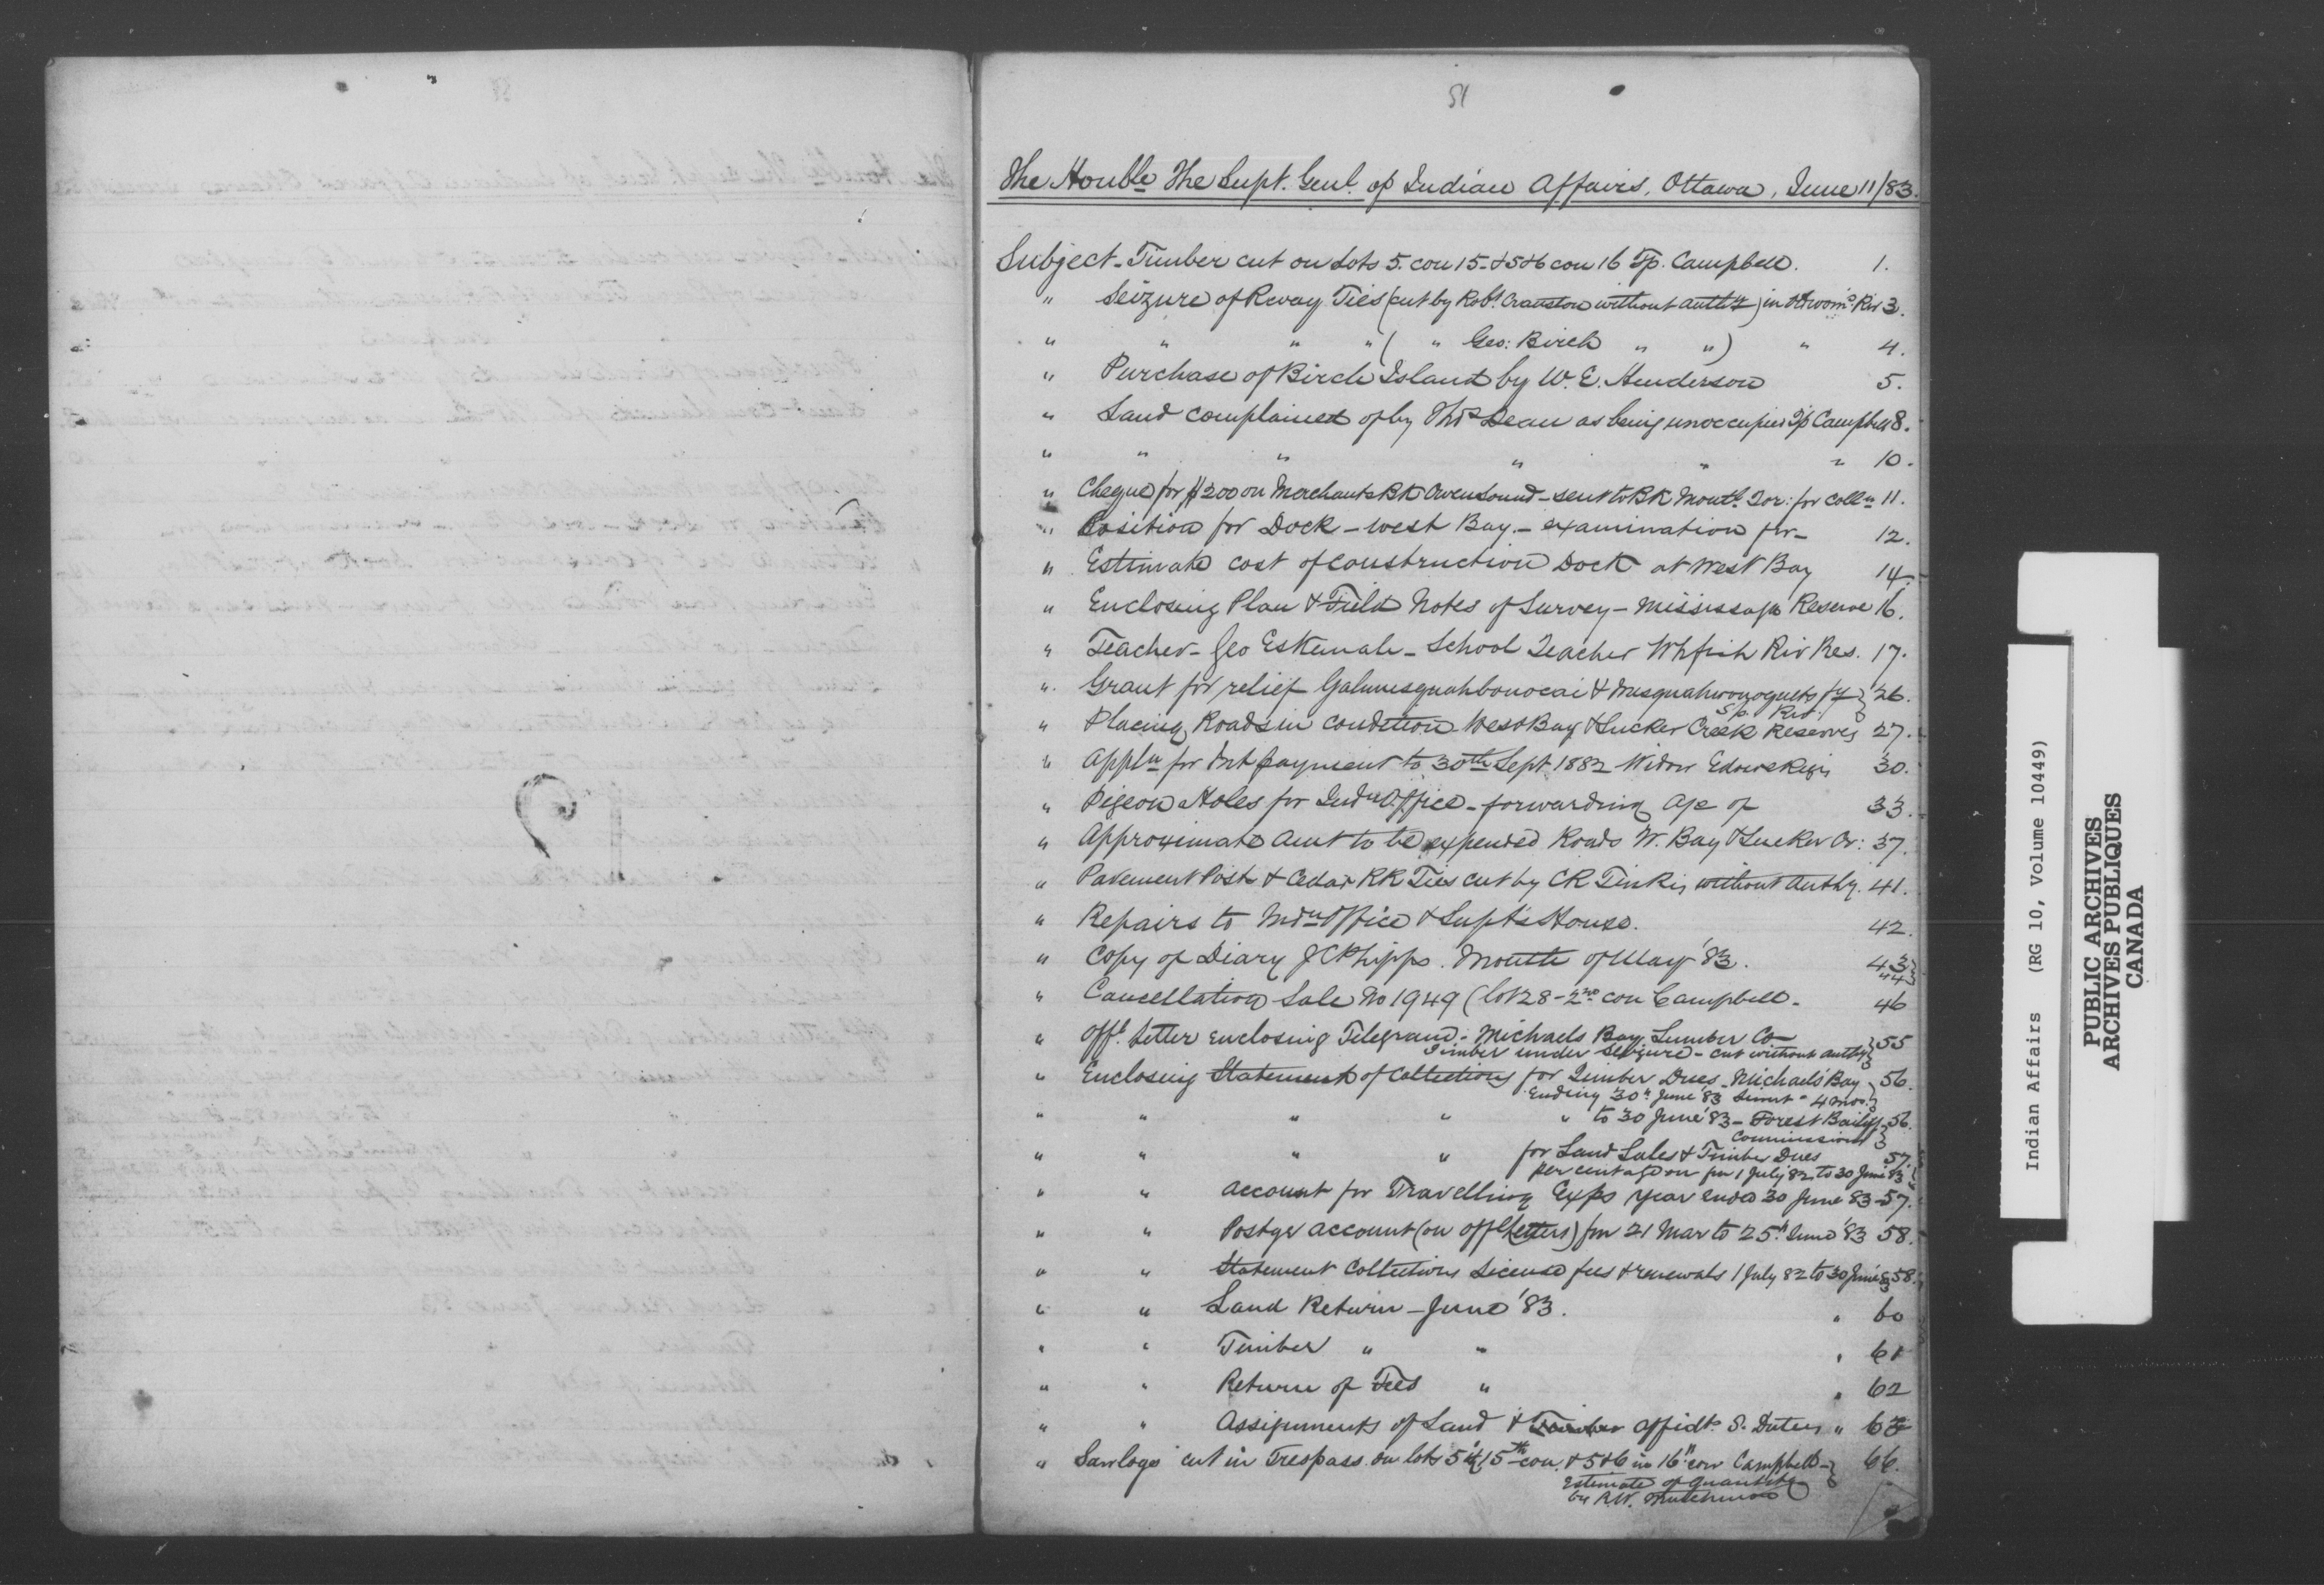 51
The Honble The Supt. Genl. of Indian Affairs, Ottawa, June 11/83.
Subject - Timber cut on Lots 5. con 15 - & 5 & 6 con 16 Tp. Campbell. 1.
" Seizure of Rway Ties (cut by Robt. Cranston without authty) in Riv 3.
" " " " ( " Geo: Birch " " ) " 4.
" Purchase of Birch Island by W. E. Henderson 5.
" Land complained of by Thos Dean as being unoccupied Tp Campbell 8.
" " " " " " 10.
" Cheque for $200 on Merchants Bk Owen Sound - sent to BK Montl. Tor: for colln 11.
" Position for Dock - West Bay. - examination for - 12.
" Estimate cost of construction Dock at West Bay 14.
" Enclosing Plan & Field Notes of Survey - Mississaga Reserve 16.
" Teacher - Geo Eskemah - School Teacher Whfish Riv Res. 17.
" Grant for relief 26.
Sp. Riv.
" Placing Roads in condition West Bay & Sucker Creek Reserves 27.
" Appln for Int payment to 30th Sept 1882 Widow 30.
" Pigeon Holes for Indn Office - forwarding a/c of 33.
" Approximate amt to be expended Roads W. Bay & Sucker Cr: 37.
" Pavement Posts & Cedar RR Ties cut by CR Tinkis without Authy. 41.
" Repairs to Indn Office & Supt's House. 42.
" Copy of Diary J C Phipps. Month of May '83. 43
"44
" Cancellation Sale No 1949 (lot 28 - 2nd con Campbell - 46
" Offl. Letter enclosing Telegram - Michaels Bay Lumber Co 55
Timber under Seizure - cut without authy
" Enclosing Statement of Collections for Timber Dues - Michaels Bay 56.
Ending 30th June '83 4 mos.
" " " " " to 30 June '83 - Forest Bailiff 56.
Commission
" " " " for Land Sales & Timber Dues 57
per centage on fm 1 July 82 to 30 June 83
" " account for Travelling Exps year ended 30 June 83 - 57.
" " Postge account (on offl letters) fm 21 Mar to 25th June '83 58.
" " Statement Collections License fees & renewals 1 July 82 to 30 June 83 58.
" " Land Return - June '83. " 60
" " Timber " " " 61
" " Return of Fees " " 62
" " Assignments of Land & Timber affidts. S. Duties " 63
" Sawlogs cut in Trespass on lots 5 in 15th con. & 5 & 6 in 16th con Campbell - 66.
Estimate of quantity
by R.W. Mutchmore
Indian Affairs (RG 10, Volume 10449)
PUBLIC ARCHIVES
ARCHIVES PUBLIQUES
CANADA